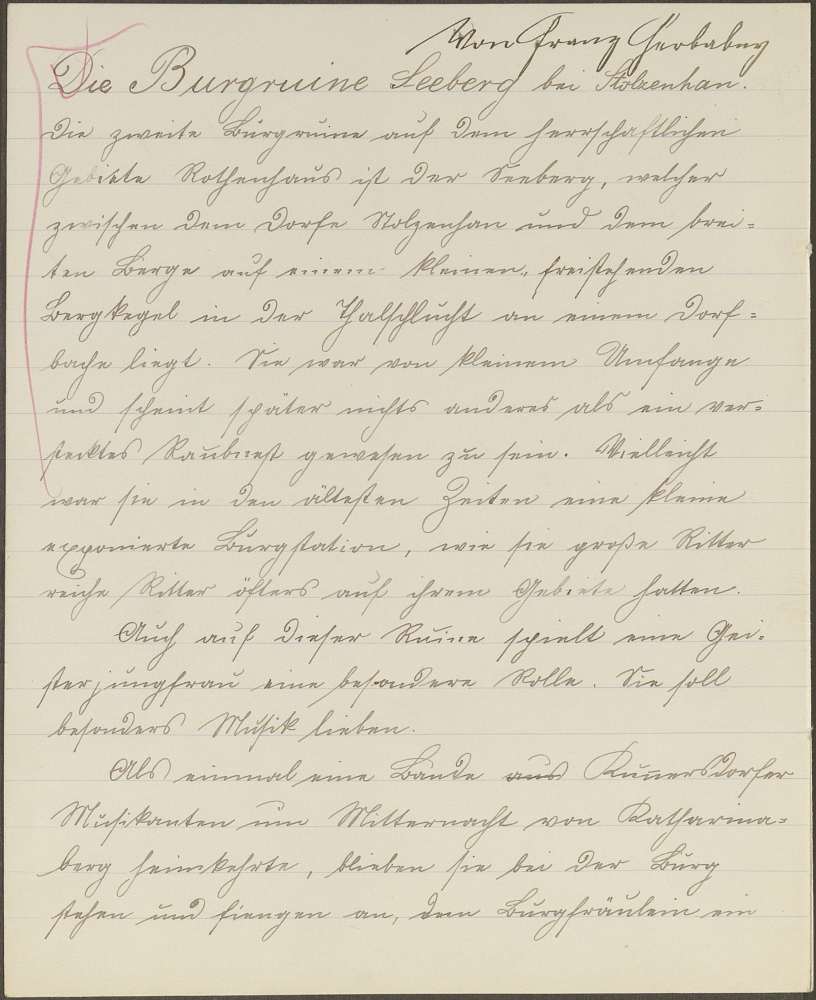 Von Franz Herbabny
Die Burgruine Seeberg bei Stolzenhan.
Die zweite Burgruine auf dem herrschaftlichen
Gebiete Rothenhaus ist der Seeberg, welcher
zwischen dem Dorfe Stolzenhan und dem brei=
ten Berge auf einem kleinen, freistehenden
Bergkegel in der Thalschlucht an einem Dorf=
bache liegt. Sie war von kleinem Umfange
und scheint später nichts anderes als ein ver=
stecktes Raubnest gewesen zu sein. Vielleicht
war sie in den ältesten Zeiten eine kleine
exponierte Burgstation, wie sie große Ritter
reiche Ritter öfters auf ihrem Gebiete hatten.
Auch auf dieser Ruine spielt eine Gei=
sterjungfrau eine besondere Rolle. Sie soll
besonders Musik lieben.
Als einmal eine Bande aus Kunnersdorfer
Musikanten um Mitternacht von Katharina=
berg heimkehrte, blieben sie bei der Burg
stehen und fiengen an, dem Burgfräulein ein